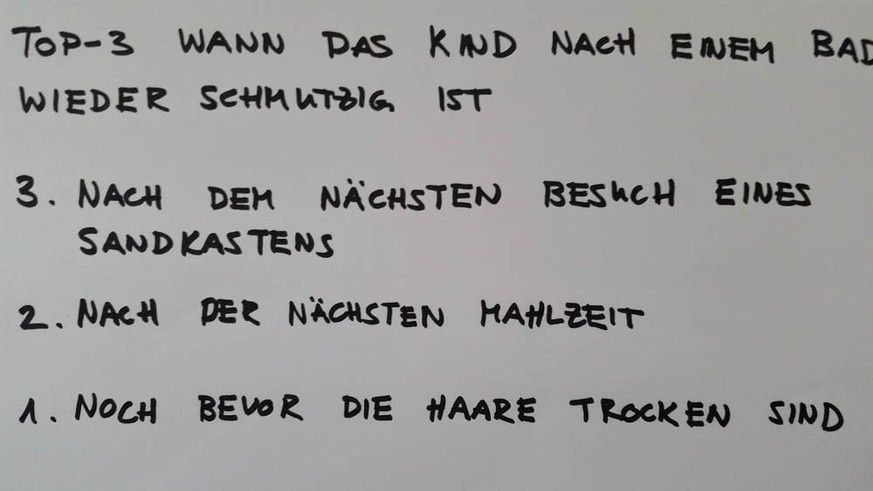 TOP-3 WANN DAS KIND NACH EINEM BAD
WIEDER SCHMUTZIG IST
3. NACH DEM NÄCHSTEN BESUCH EINES
SANDKASTENS
2. NACH DER NÄCHSTEN MAHLZEIT
1. NOCH BEVOR DIE HAARE TROCKEN SIND